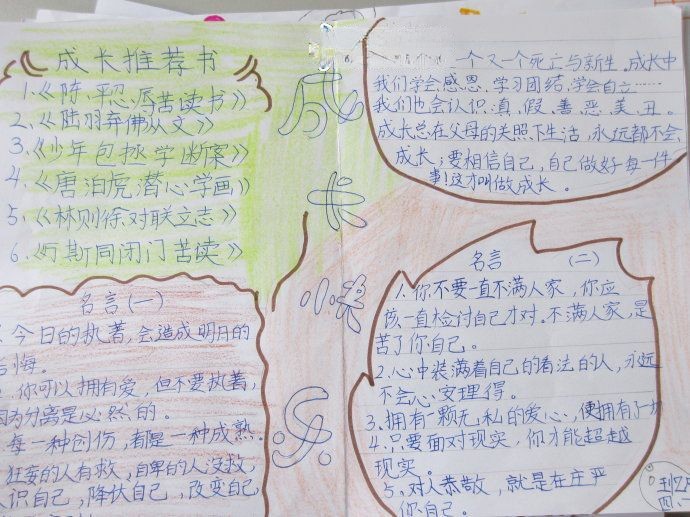 成长推荐书
1.《陈平忍辱苦读书》
2.《陆羽弃佛从文》
3.《少年包拯学断案》
4.《唐泊虎潜心学画》
5.《林则徐对联立志》
6.《万斯同闭门苦读》
成长
一个又一个死亡与新生。成长中
我们学会感恩、学习团结、学会自立……
我们也会认识真、假、善、恶、美、丑。
成长总在父母的关照下生活,永远都不会
成长;要相信自己,自己做好每一件
事!这才叫做成长。
名言(一)
今日的执著,会造成明日的
后悔。
你可以拥有爱,但不要执著,
因为分离是必然的。
每一种创伤,都是一种成熟。
狂妄的人有救,自卑的人没救,
认识自己,降伏自己,改变自己
名言(二)
1.你不要一直不满人家,你应
该一直检讨自己才对。不满人家,是
苦了你自己。
2.心中装满着自己的看法的人,永远
不会心安理得。
3.拥有一颗无私的爱心,便拥有了一切
4.只要面对现实,你才能超越
现实。
5.对人恭敬,就是在庄严
你自己。